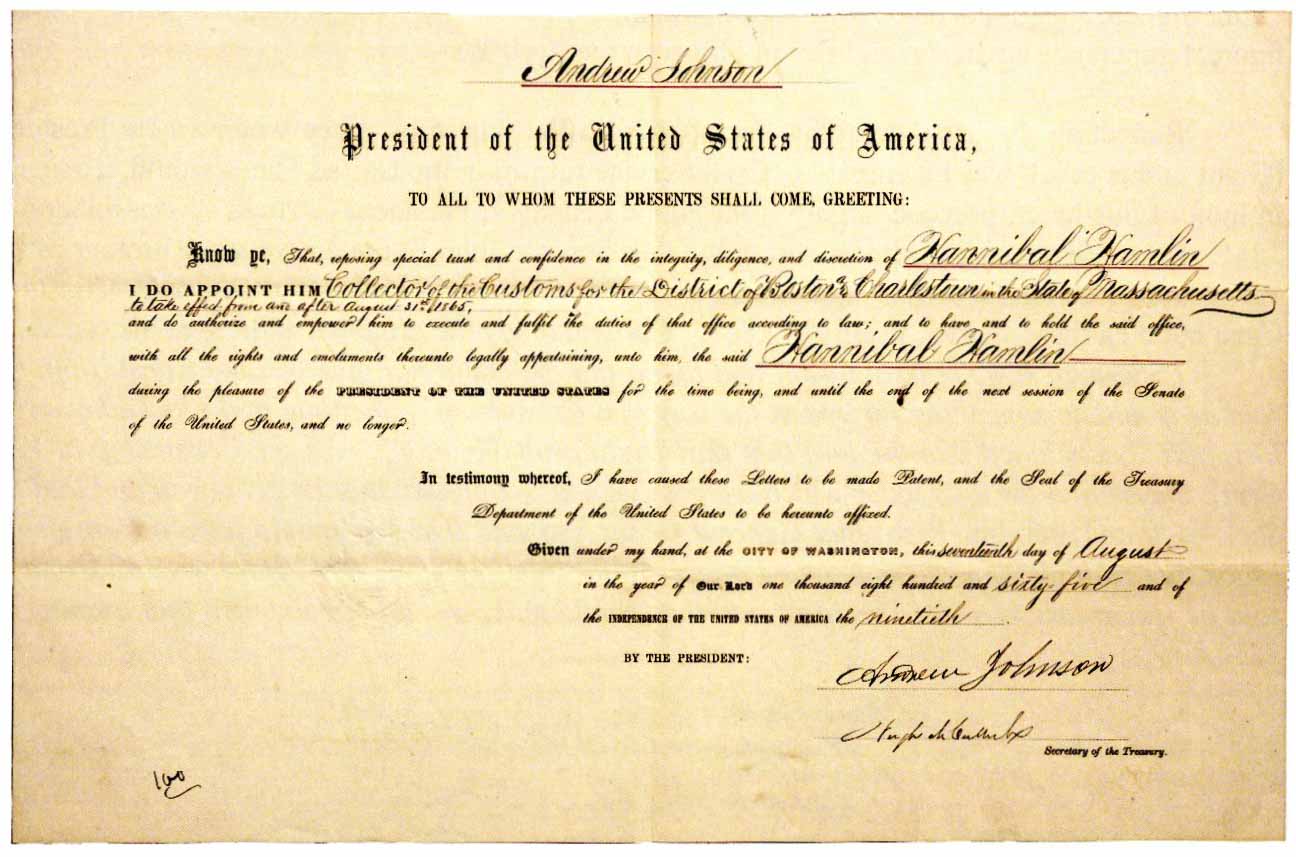 Andrew Johnson
President of the United States of America,
TO ALL TO WHOM THESE PRESENTS SHALL COME, GREETING:
Know ye, That, reposing special trust and confidence in the integrity, diligence, and discretion of Hannibal Hamlin
I DO APPOINT HIM Collector of the Customs for the District of Boston & Charlestown in the State of Massachusetts
to take effect from and after August 31st, 1865,
and do authorize and empower him to execute and fulfil the duties of that office according to law; and to have and to hold the said office,
with all the rights and emoluments thereunto legally appertaining, unto him, the said Hannibal Hamlin
during the pleasure of the PRESIDENT OF THE UNITED STATES for the time being, and until the end of the next session of the Senate
of the United States, and no longer.
In testimony whereof, I have caused these Letters to be made Patent, and the Seal of the Treasury
Department of the United States to be hereunto affixed.
Given under my hand, at the CITY OF WASHINGTON, this seventeenth day of August
in the year of Our Lord one thousand eight hundred and sixty-five and of
the INDEPENDENCE OF THE UNITED STATES OF AMERICA the ninetieth.
BY THE PRESIDENT:
Andrew Johnson
Hugh McCulloch
Secretary of the Treasury.
100